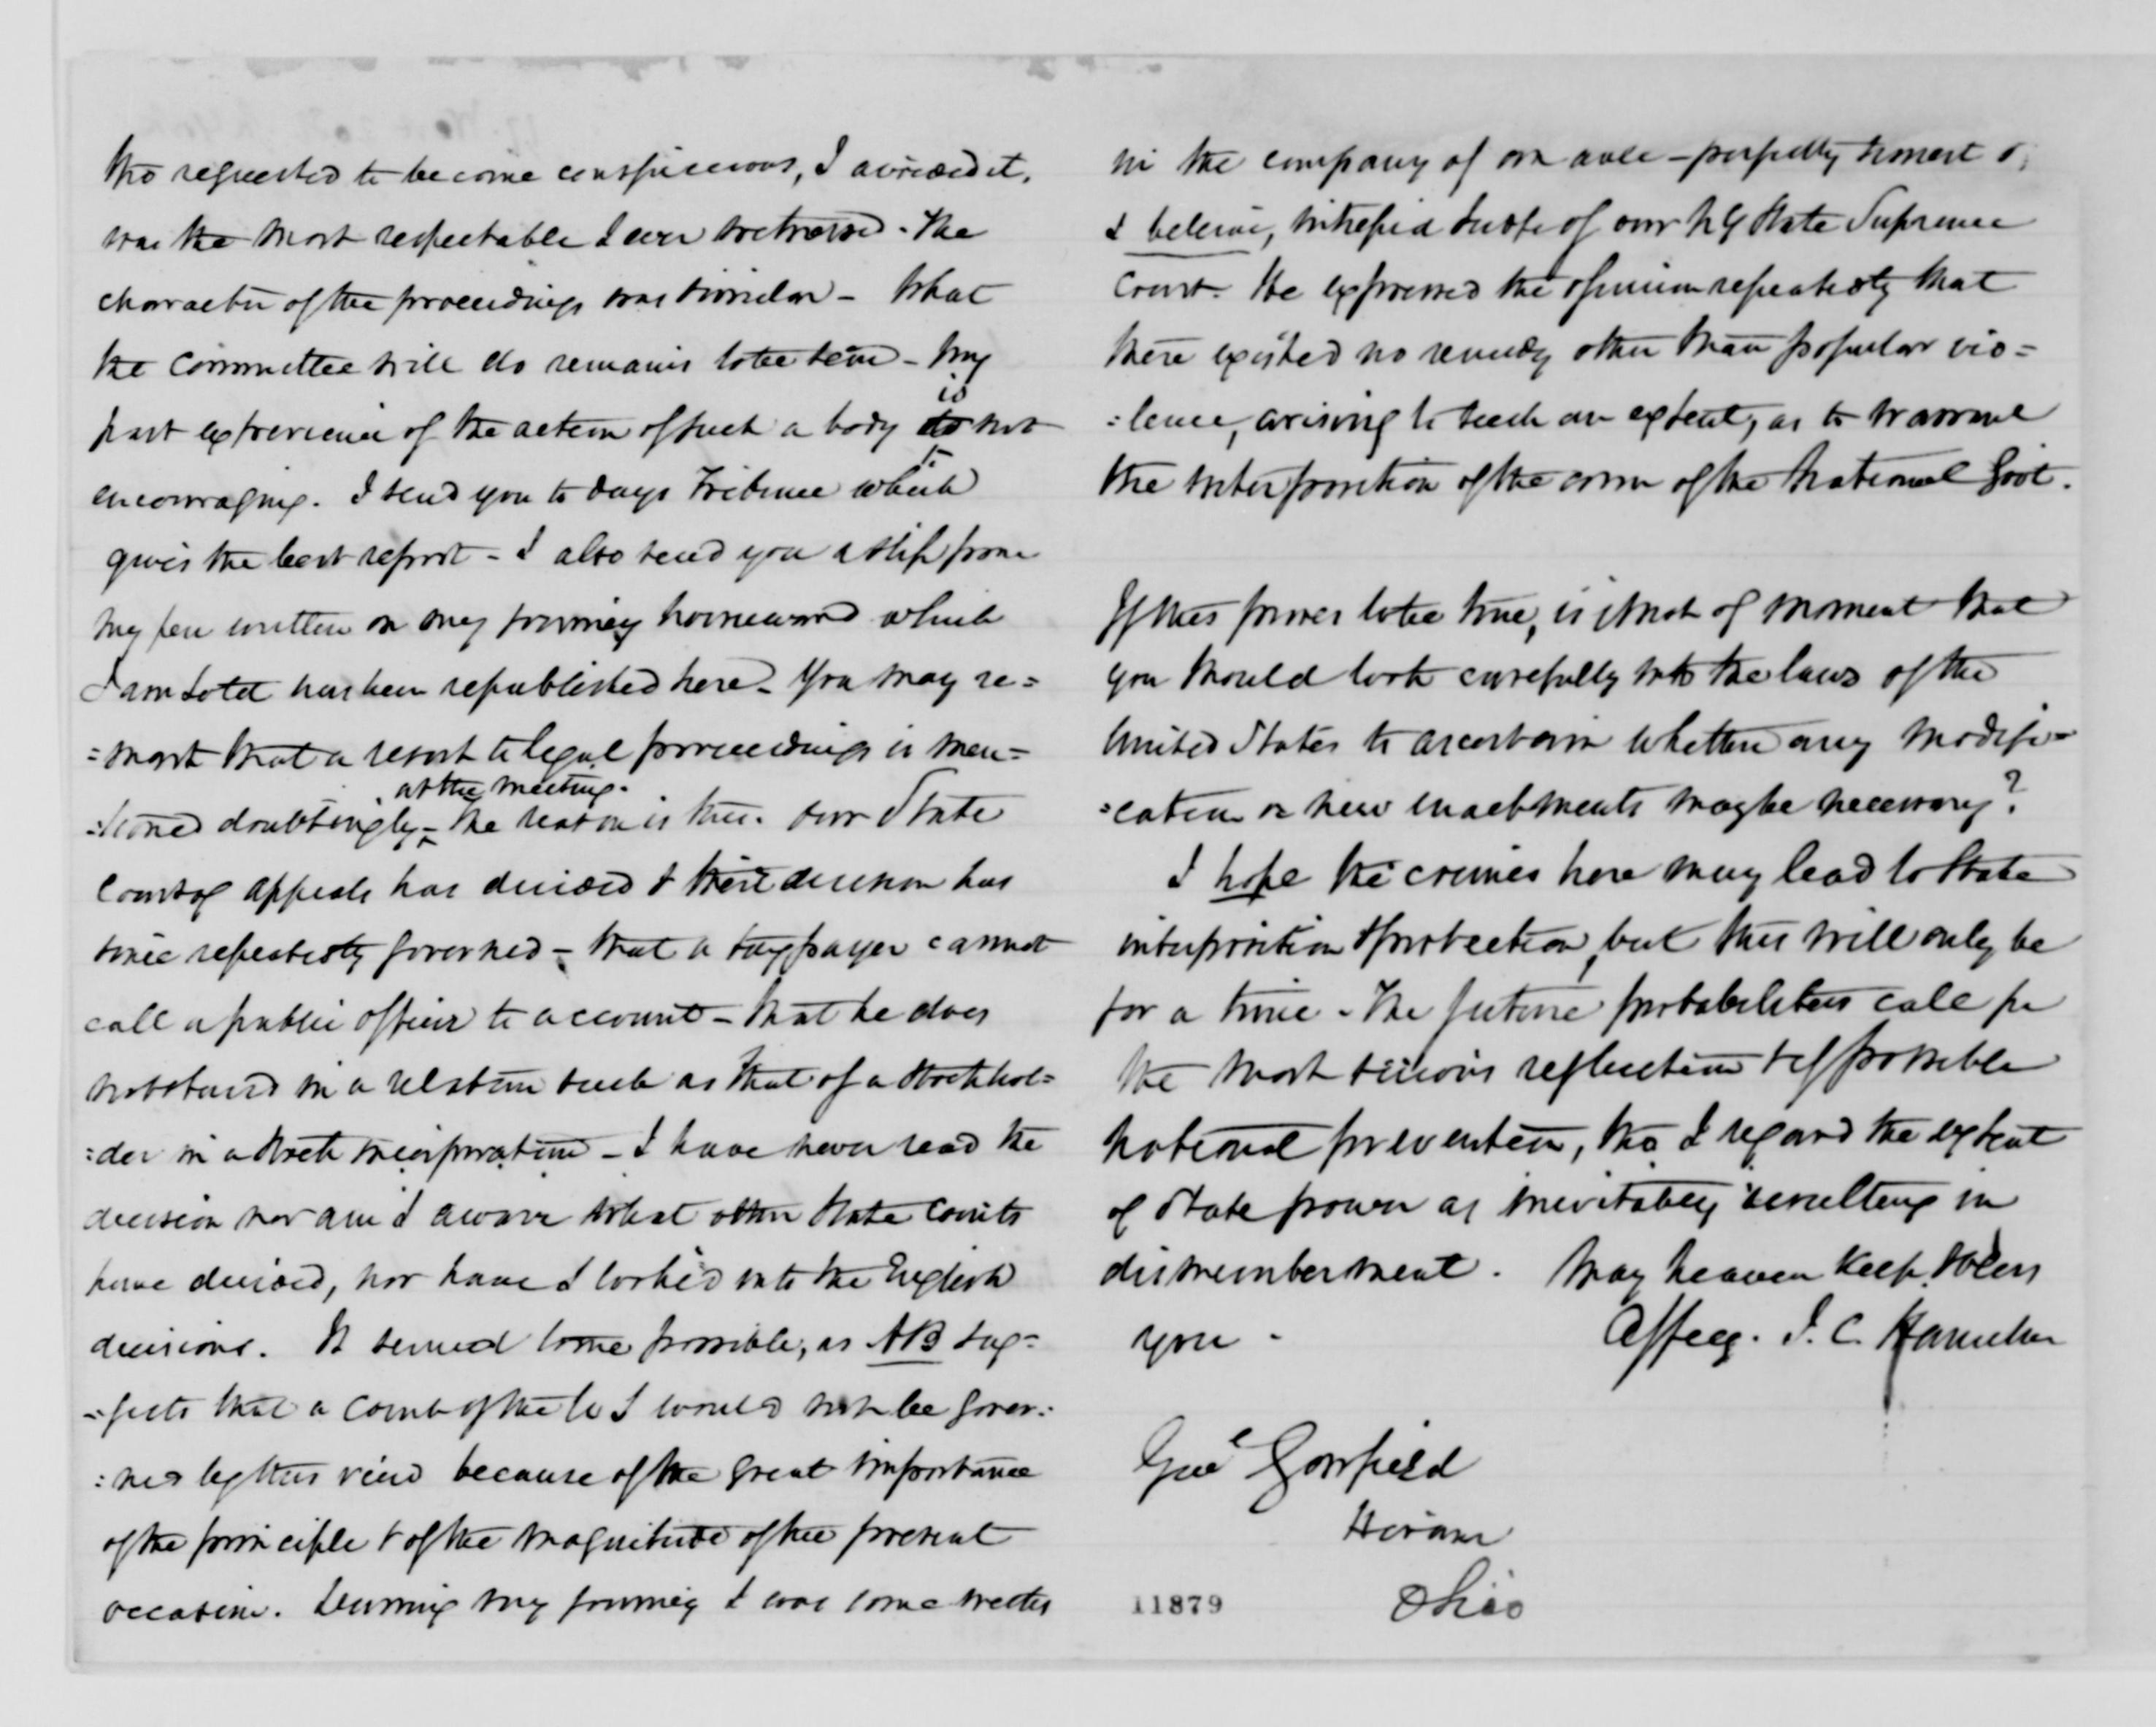 tho requested to become conspicuous, I avoided it,
was the most respectable I ever witnessed. The
character of the proceedings was similar - What
the Committee will do remains to be seen - My
past experience of the action of such a body is not
encouraging. I send you to days Tribune which
gives the best report - I also send you a slip from
my pen written on my journey homeward which
I am told has been republished here. You may re=
=mark that a resort to legal proceedings is men=
=tioned doubtingly at the meeting. - The reason is this. Our State
Court of Appeals has decided & their decision has
since repeatedly governed - that a taxpayer cannot
call a public officer to account - that he does
not stand in a relation such as that of a stockhol=
=der in a stock incorporation - I have never read the
decision nor am I aware what other State Courts
have decided, nor have I looked into the English
decisions. It seemed to me possible, as AB sug=
=gests that a Court of the U S would not be gover=
=ned by this view because of the great importance
of the principle & of the magnitude of the present
occasion. During my journey I was some weeks
in the company of an able - perfectly honest &
I believe, intrepid Judge of our N Y State Supreme
Court. He expressed the opinion repeatedly that
there existed no remedy other than popular vio=
=lence, arising to such an extent, as to warrant
the interposition of the arm of the National Govt.
If this proves to be true, is it not of moment that
you should look carefully into the laws of the
United States to ascertain whether any modifi=
=cation or new enactments may be necessary?
I hope the crimes here may lead to State
interposition & protection, but this will only be
for a time - The future probabilities call for
the most serious reflection & if possible
national prevention, tho I regard the extent
of State power as inevitably resulting in
dismemberment. May heaven keep & bless
you - Affecy. J. C. Hamilton
Genl Garfield
Hiram
Ohio
11879